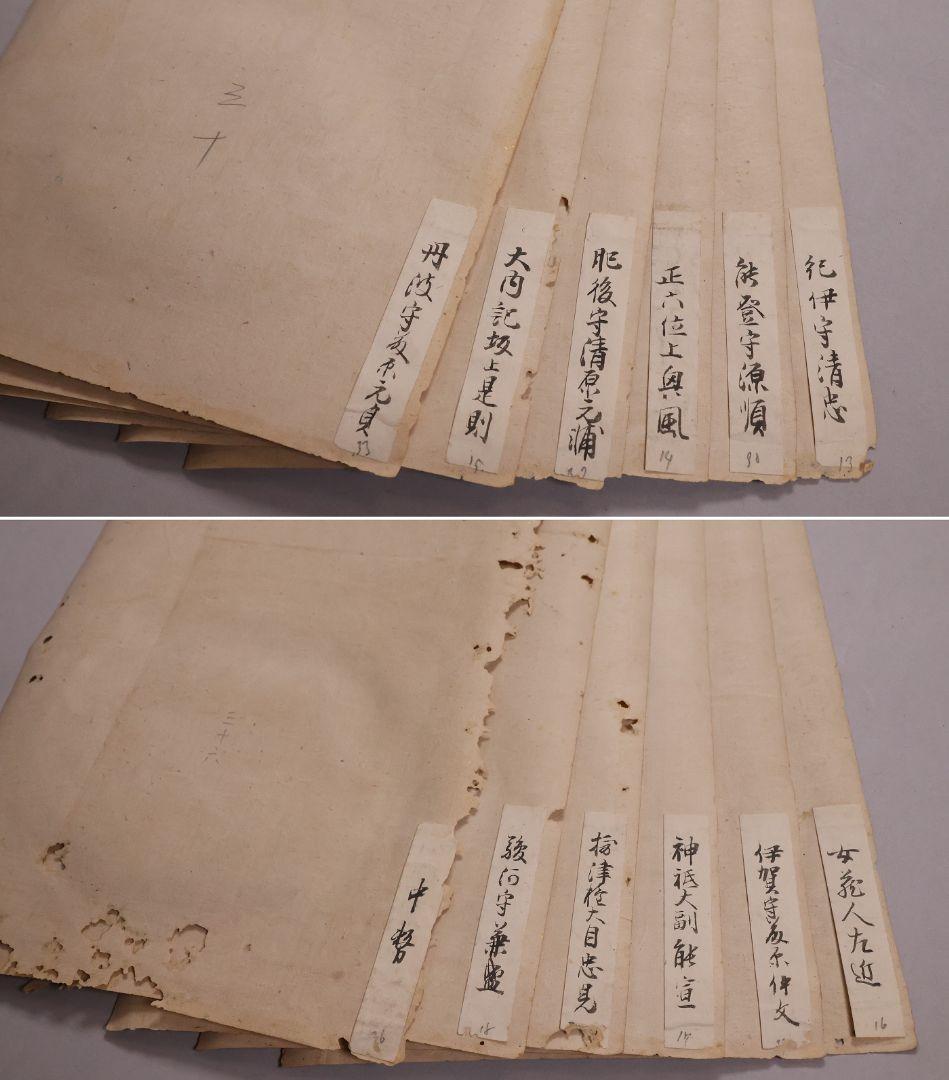 三十
丹波守藤原元真
33
大内記坂上是則
15
肥後守清原元輔
正六位上興風
14
能登守源順
紀伊守清忠
13
三十六
中務
36
駿河守兼盛
18
摂津権大目忠見
神祇大副能宣
伊賀守藤原仲文
女蔵人左近
16